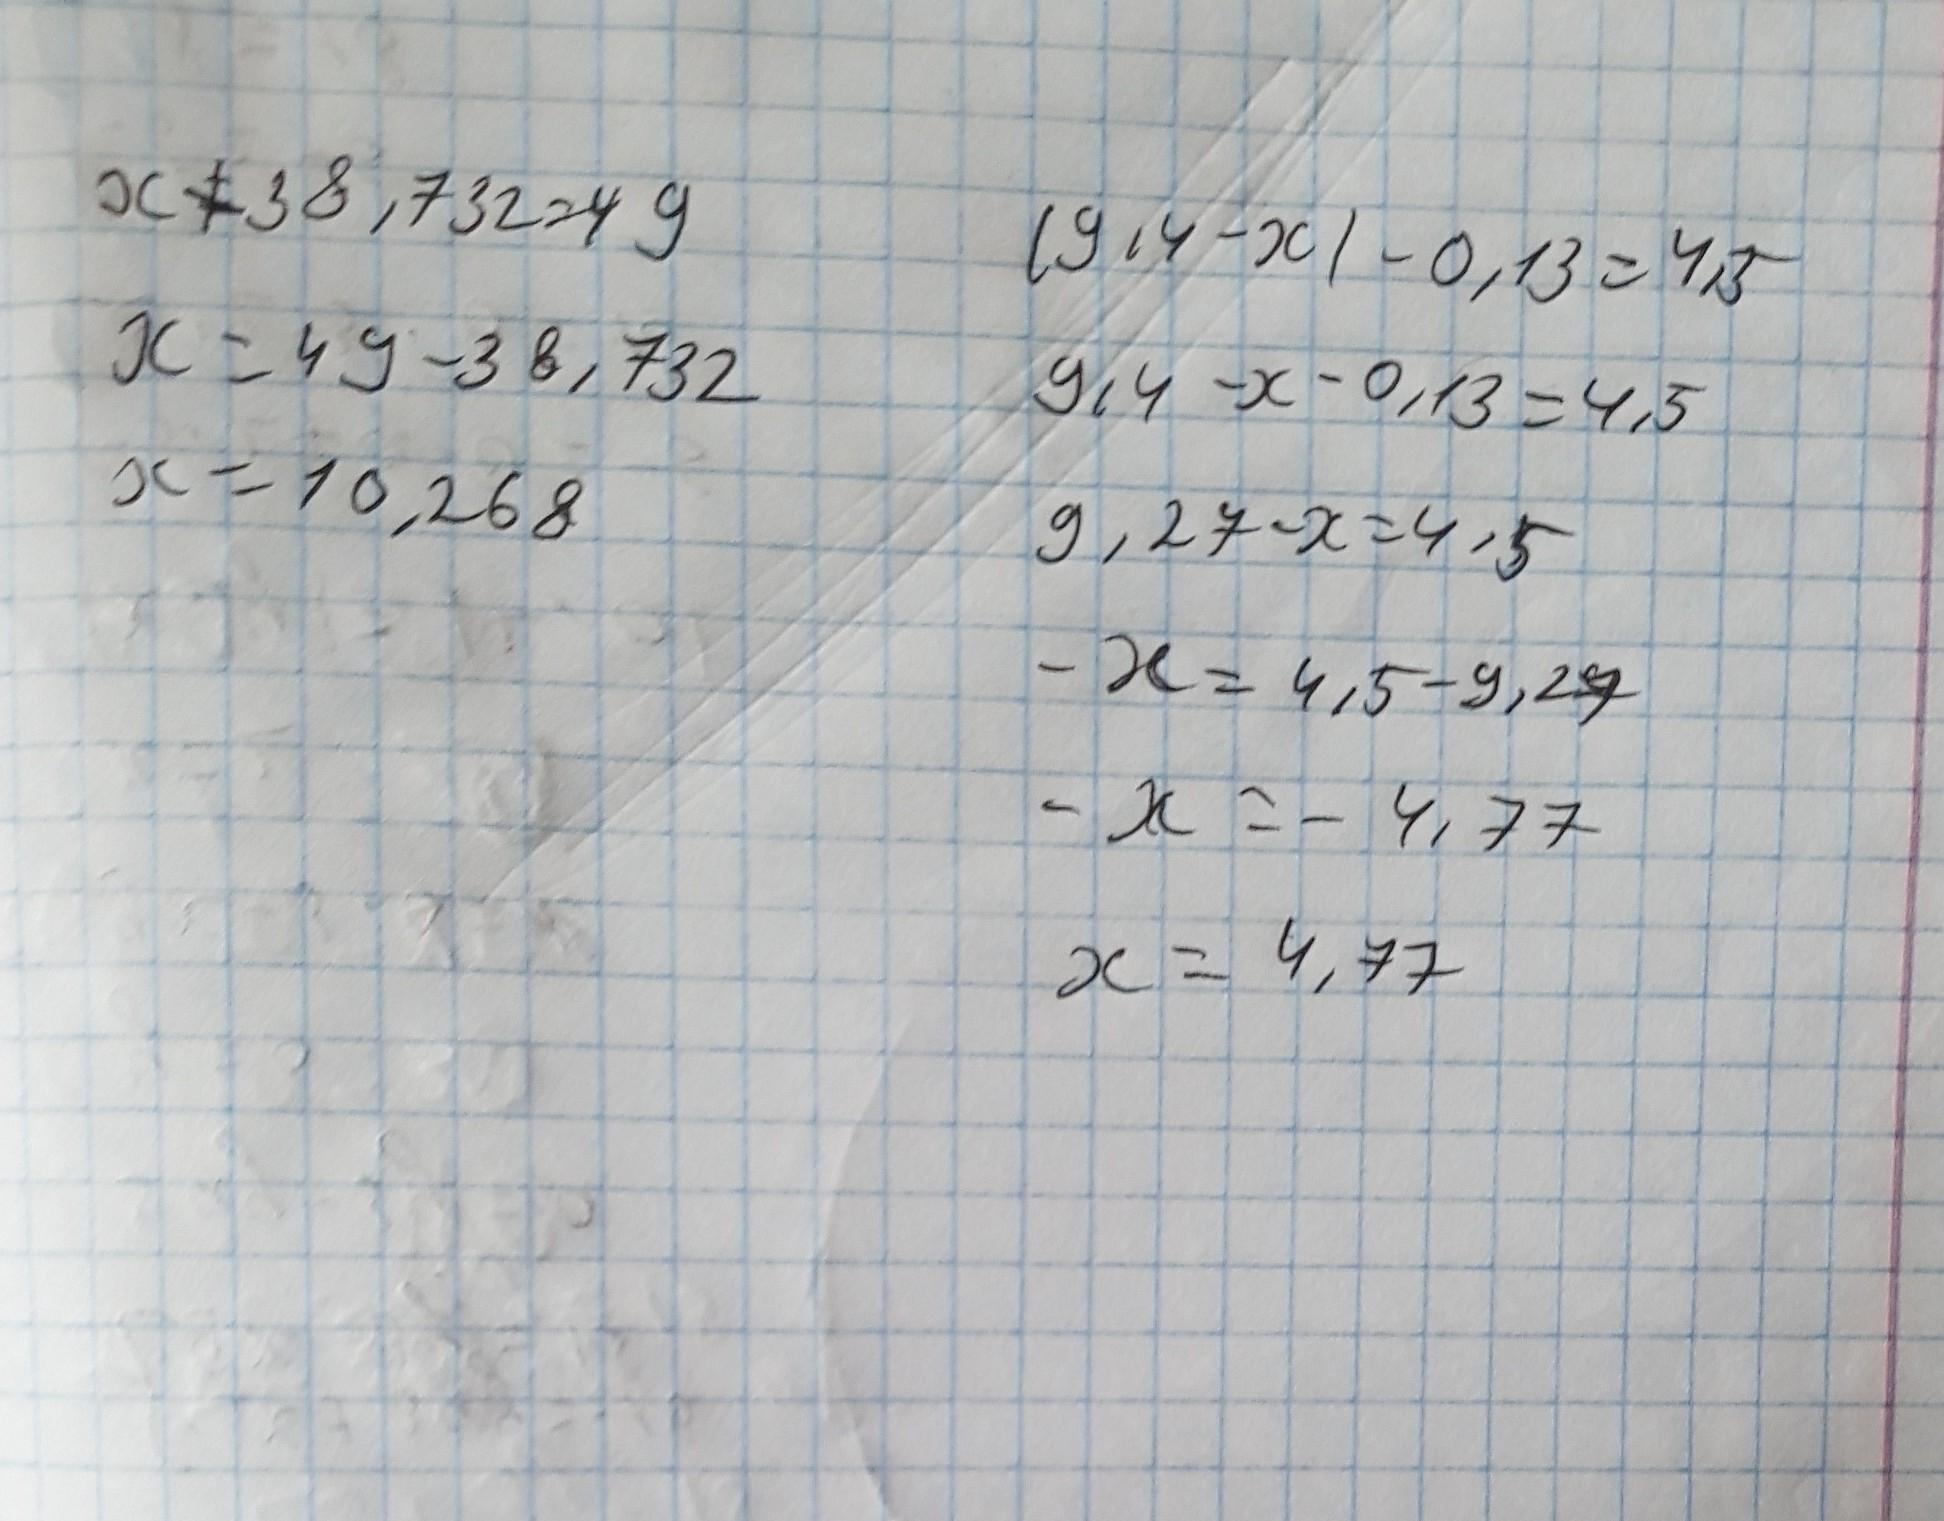 x+38,732=49
x=49-38,732
x=10,268
(9,4-x)-0,13=4,5
9,4-x-0,13=4,5
9,27-x=4,5
-x=4,5-9,27
-x=-4,77
x=4,77